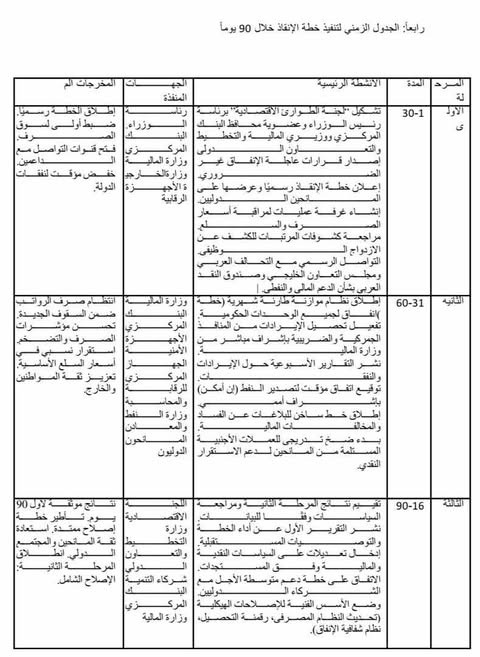 رابعاً: الجدول الزمني لتنفيذ خطة الإنقاذ خلال 90 يوماً
المرحلة
المدة
الأنشطة الرئيسية
الجهات المنفذة
المخرجات الم
الاولى
30-1
تشكيل "لجنة الطوارئ الاقتصادية" برئاسة
رئيس الوزراء وعضوية محافظ البنك
المركزي ووزيري المالية والتخطيط
والتعاون الدولي
إصدار قرارات عاجلة لإيقاف الإنفاق غير
الضروري.
إعلان خطة الإنقاذ رسميًا وعرضها على
المانحين الدوليين.
إنشاء غرفة عمليات لمراقبة أسعار
الصرف والسلع.
مراجعة كشوفات المرتبات للكشف عن
الازدواج الوظيفي.
التواصل الرسمي مع التحالف العربي
ومجلس التعاون الخليجي وصندوق النقد
العربي بشأن الدعم المالي والنفطي.
رئاسة
الوزراء.
البنك
المركزي
وزارة المالية
وزارة الخارجي
ة الأجهزة
الرقابية
إطلاق الخطة رسميًا.
ضبط أولي لسوق
الصرف.
فتح قنوات التواصل مع
الداعمين.
خفض مؤقت لنفقات
الدولة.
الثانيه
60-31
إطلاق نظام موازنة طارئة شهرية (خطة
إنفاق) لجميع الوحدات الحكومية.
تفعيل تحصيل الإيرادات من المنافذ
الجمركية والضريبية بإشراف مباشر من
وزارة المالية.
نشر التقارير الأسبوعية حول الإيرادات
والنفقات.
توقيع اتفاق مؤقت لتصدير النفط (إن أمكن)
بإشراف أممي.
إطلاق خط ساخن للبلاغات عن الفساد
والمخالفات المالية.
بدء ضخ تدريجي للعملات الأجنبية
المستلمة من المانحين لدعم الاستقرار
النقدي.
وزارة المالية
البنك
المركزي
الأجهزة
الأمنية
الجهاز
المركزي
للرقابة
والمحاسبة
وزارة النفط
والمعادن
المانحون
الدوليون
انتظام صرف الرواتب
ضمن السقوف الجديدة.
تحسن مؤشرات
الصرف والتضخم.
استقرار نسبي في
أسعار السلع الأساسية.
تعزيز ثقة المواطنين
والخارج.
الثالثة
90-16
تقييم نتائج المرحلة الثانية ومراجعة
السياسات وفقًا للبيانات.
نشر التقرير الأول عن أداء الخطة
والتوصيات المستقبلية.
إدخال تعديلات على السياسات النقدية
والمالية وفق المستجدات.
الاتفاق على خطة دعم متوسطة الأجل مع
الشركاء الدوليين.
وضع الأسس الفنية للإصلاحات الهيكلية
(تحديث النظام المصرفي، رقمنة التحصيل،
نظام شفافية الإنفاق).
اللجنة
الاقتصادية
وزارة
التخطيط
والتعاون
الدولي
شركاء التنمية
البنك
المركزي
وزارة المالية
نتائج موثقة لأول 90
يوم. تأطير خطة
إصلاح ممتدة. استعادة
ثقة المانحين والمجتمع
الدولي. انطلاق
المرحلة الثانية:
الإصلاح الشامل.